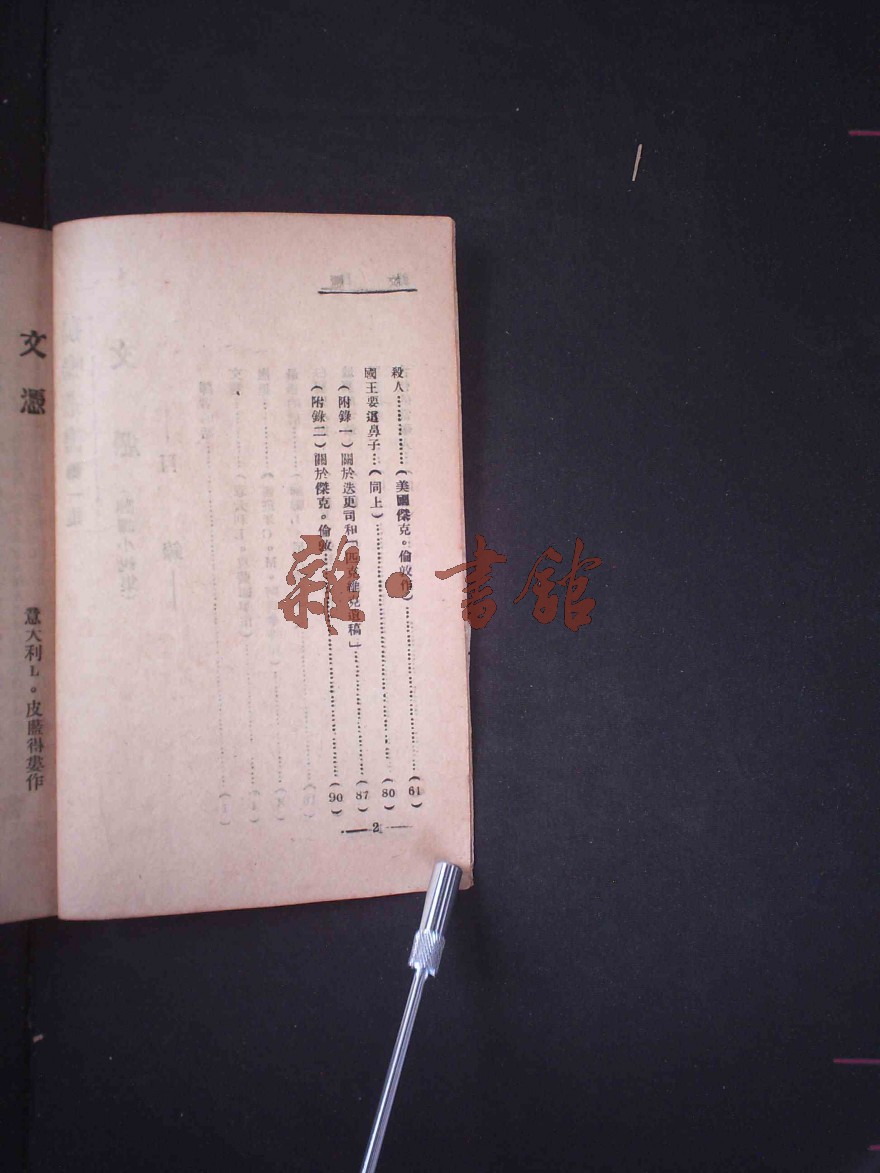 殺人…………(美國傑克。倫敦作)…………(61)
國王要選鼻子…(同上)…………(80)
(附錄一)關於迭更司和「匹克維克遺稿」…………(87)
(附錄二)關於傑克。倫敦…………(90)
2
文憑
意大利L。皮藍得婁作
雜·書館